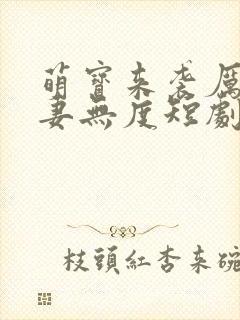 萌寶來袭厲
妻無度短劇
枝頭紅杏來碗